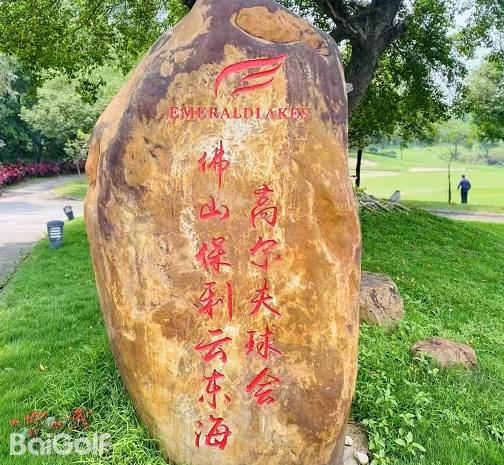 EMERALDLAKES
佛山保利云东海
高尔夫球会
BaiGolf